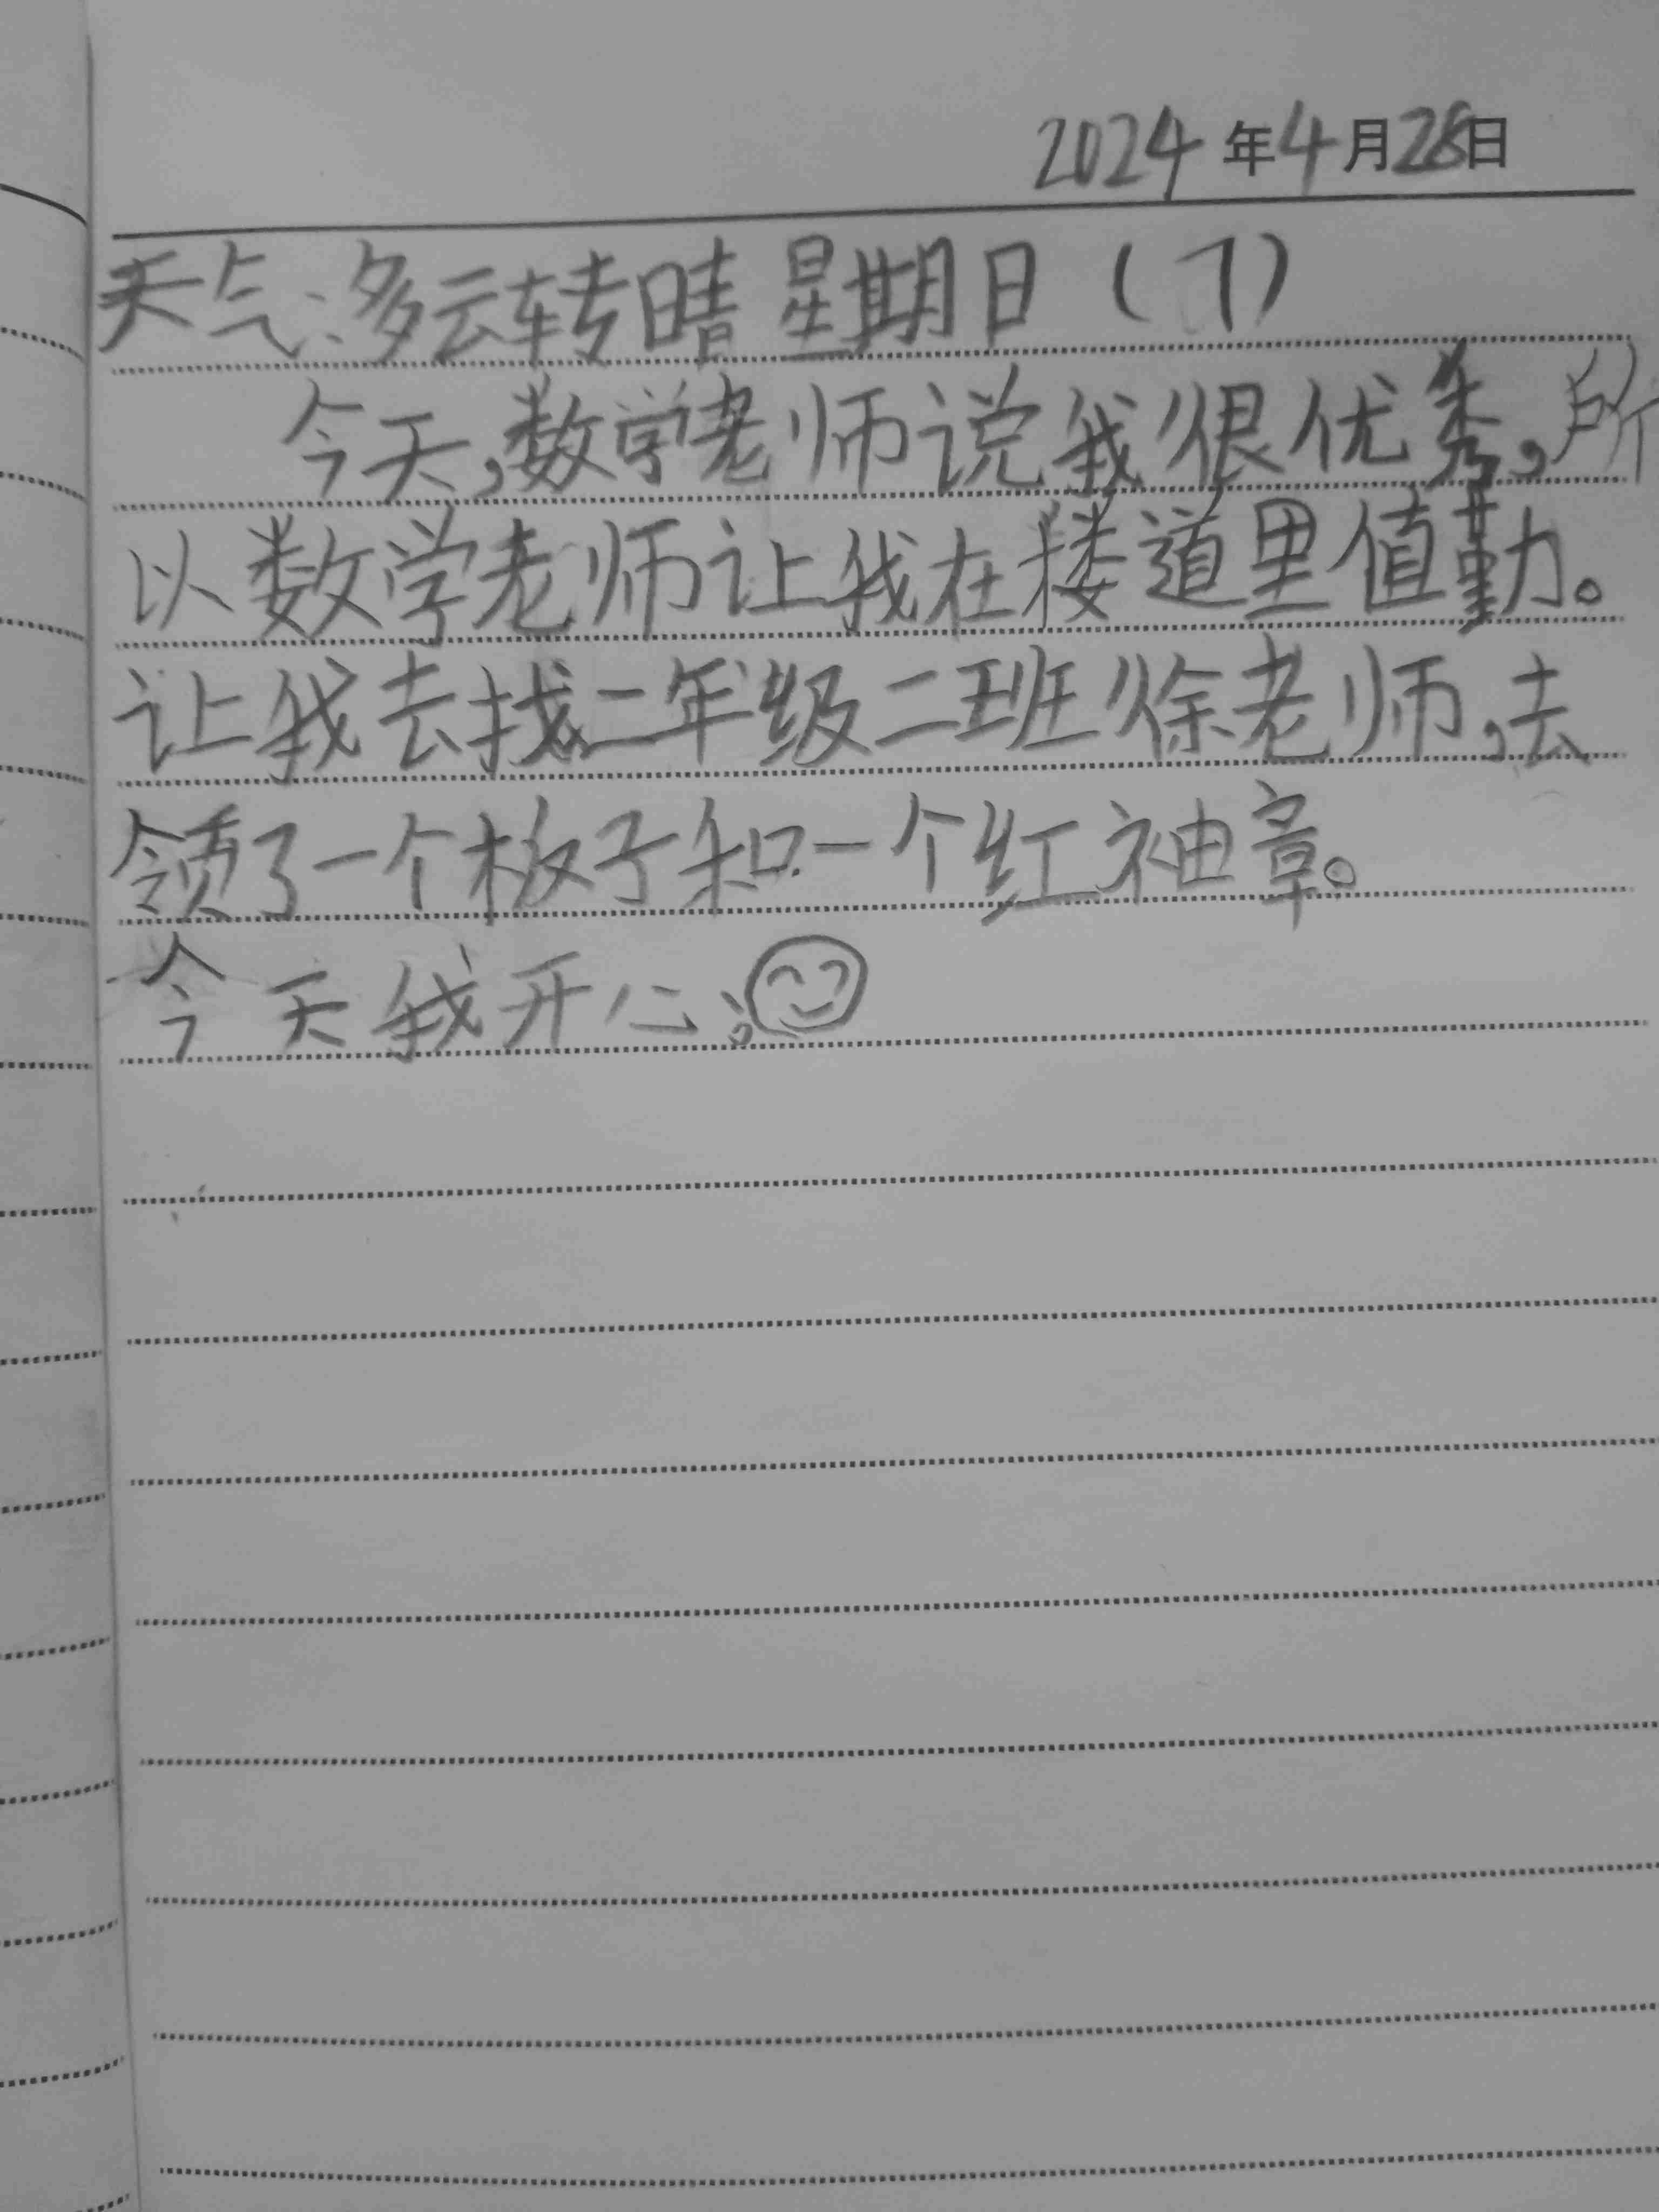 2024年4月28日
天气:多云转晴 星期日(7)
今天,数学老师说我很优秀,所
以数学老师让我在楼道里值勤。
让我去找二年级二班徐老师,去
领了一个板子和一个红袖章。
今天我开心。